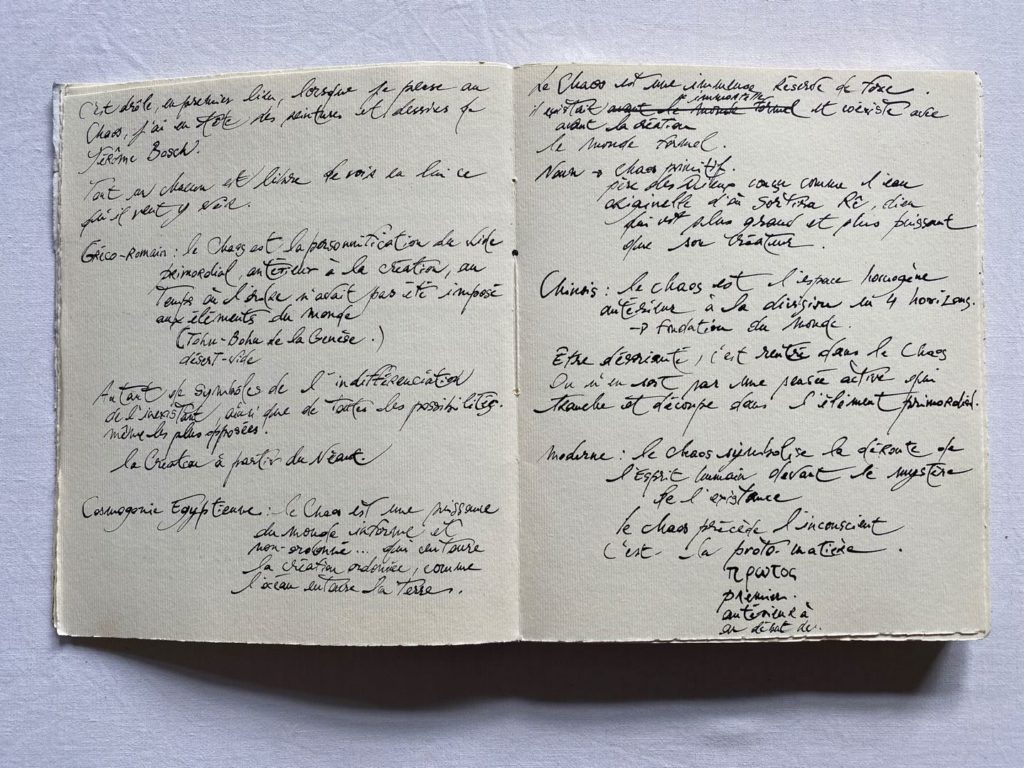 C'est drôle, en premier lieu, lorsque je pense au
Chaos, j'ai en tête des peintures et dessins de
Jérôme Bosch.
Tout un chacun est libre de voir en lui ce
qu'il veut y voir.
Gréco-Romain : le Chaos est la personnification du vide
primordial, antérieur à la création, au
Temps où l'ordre n'avait pas été imposé
aux éléments du monde
(Tohu-Bohu de la Genèse.)
désert-vide
Autant de symboles de l'indifférenciation
de l'inexistant, ainsi que de toutes les possibilités.
même les plus opposées.
la Création à partir du Néant.
Cosmogonie Egyptienne : le Chaos est une puissance
du monde informe et
non-ordonné... qui entoure
la création ordonnée, comme
l'océan entoure la Terre.
Le Chaos est une immense Réserve de Force.
il existait avant le monde formel et coexiste avec
avant la création
le monde formel.
Noun → chaos primitif.
père des Dieux conçu comme l'eau
originelle d'où sortira Rê, dieu
qui est plus grand et plus puissant
que son Créateur.
Chinois : le chaos est l'espace homogène
antérieur à la division en 4 horizons.
→ Fondation du Monde.
Etre désorienté, c'est rentré dans le Chaos
On n'en sort par une pensée active qui
tranche et découpe dans l'élément primordial.
Moderne : le chaos symbolise la déroute de
l'Esprit humain devant le mystère
de l'existance
le chaos précède l'inconscient
c'est la proto-matière.
πρωτος
premier.
antérieur à
au début de.